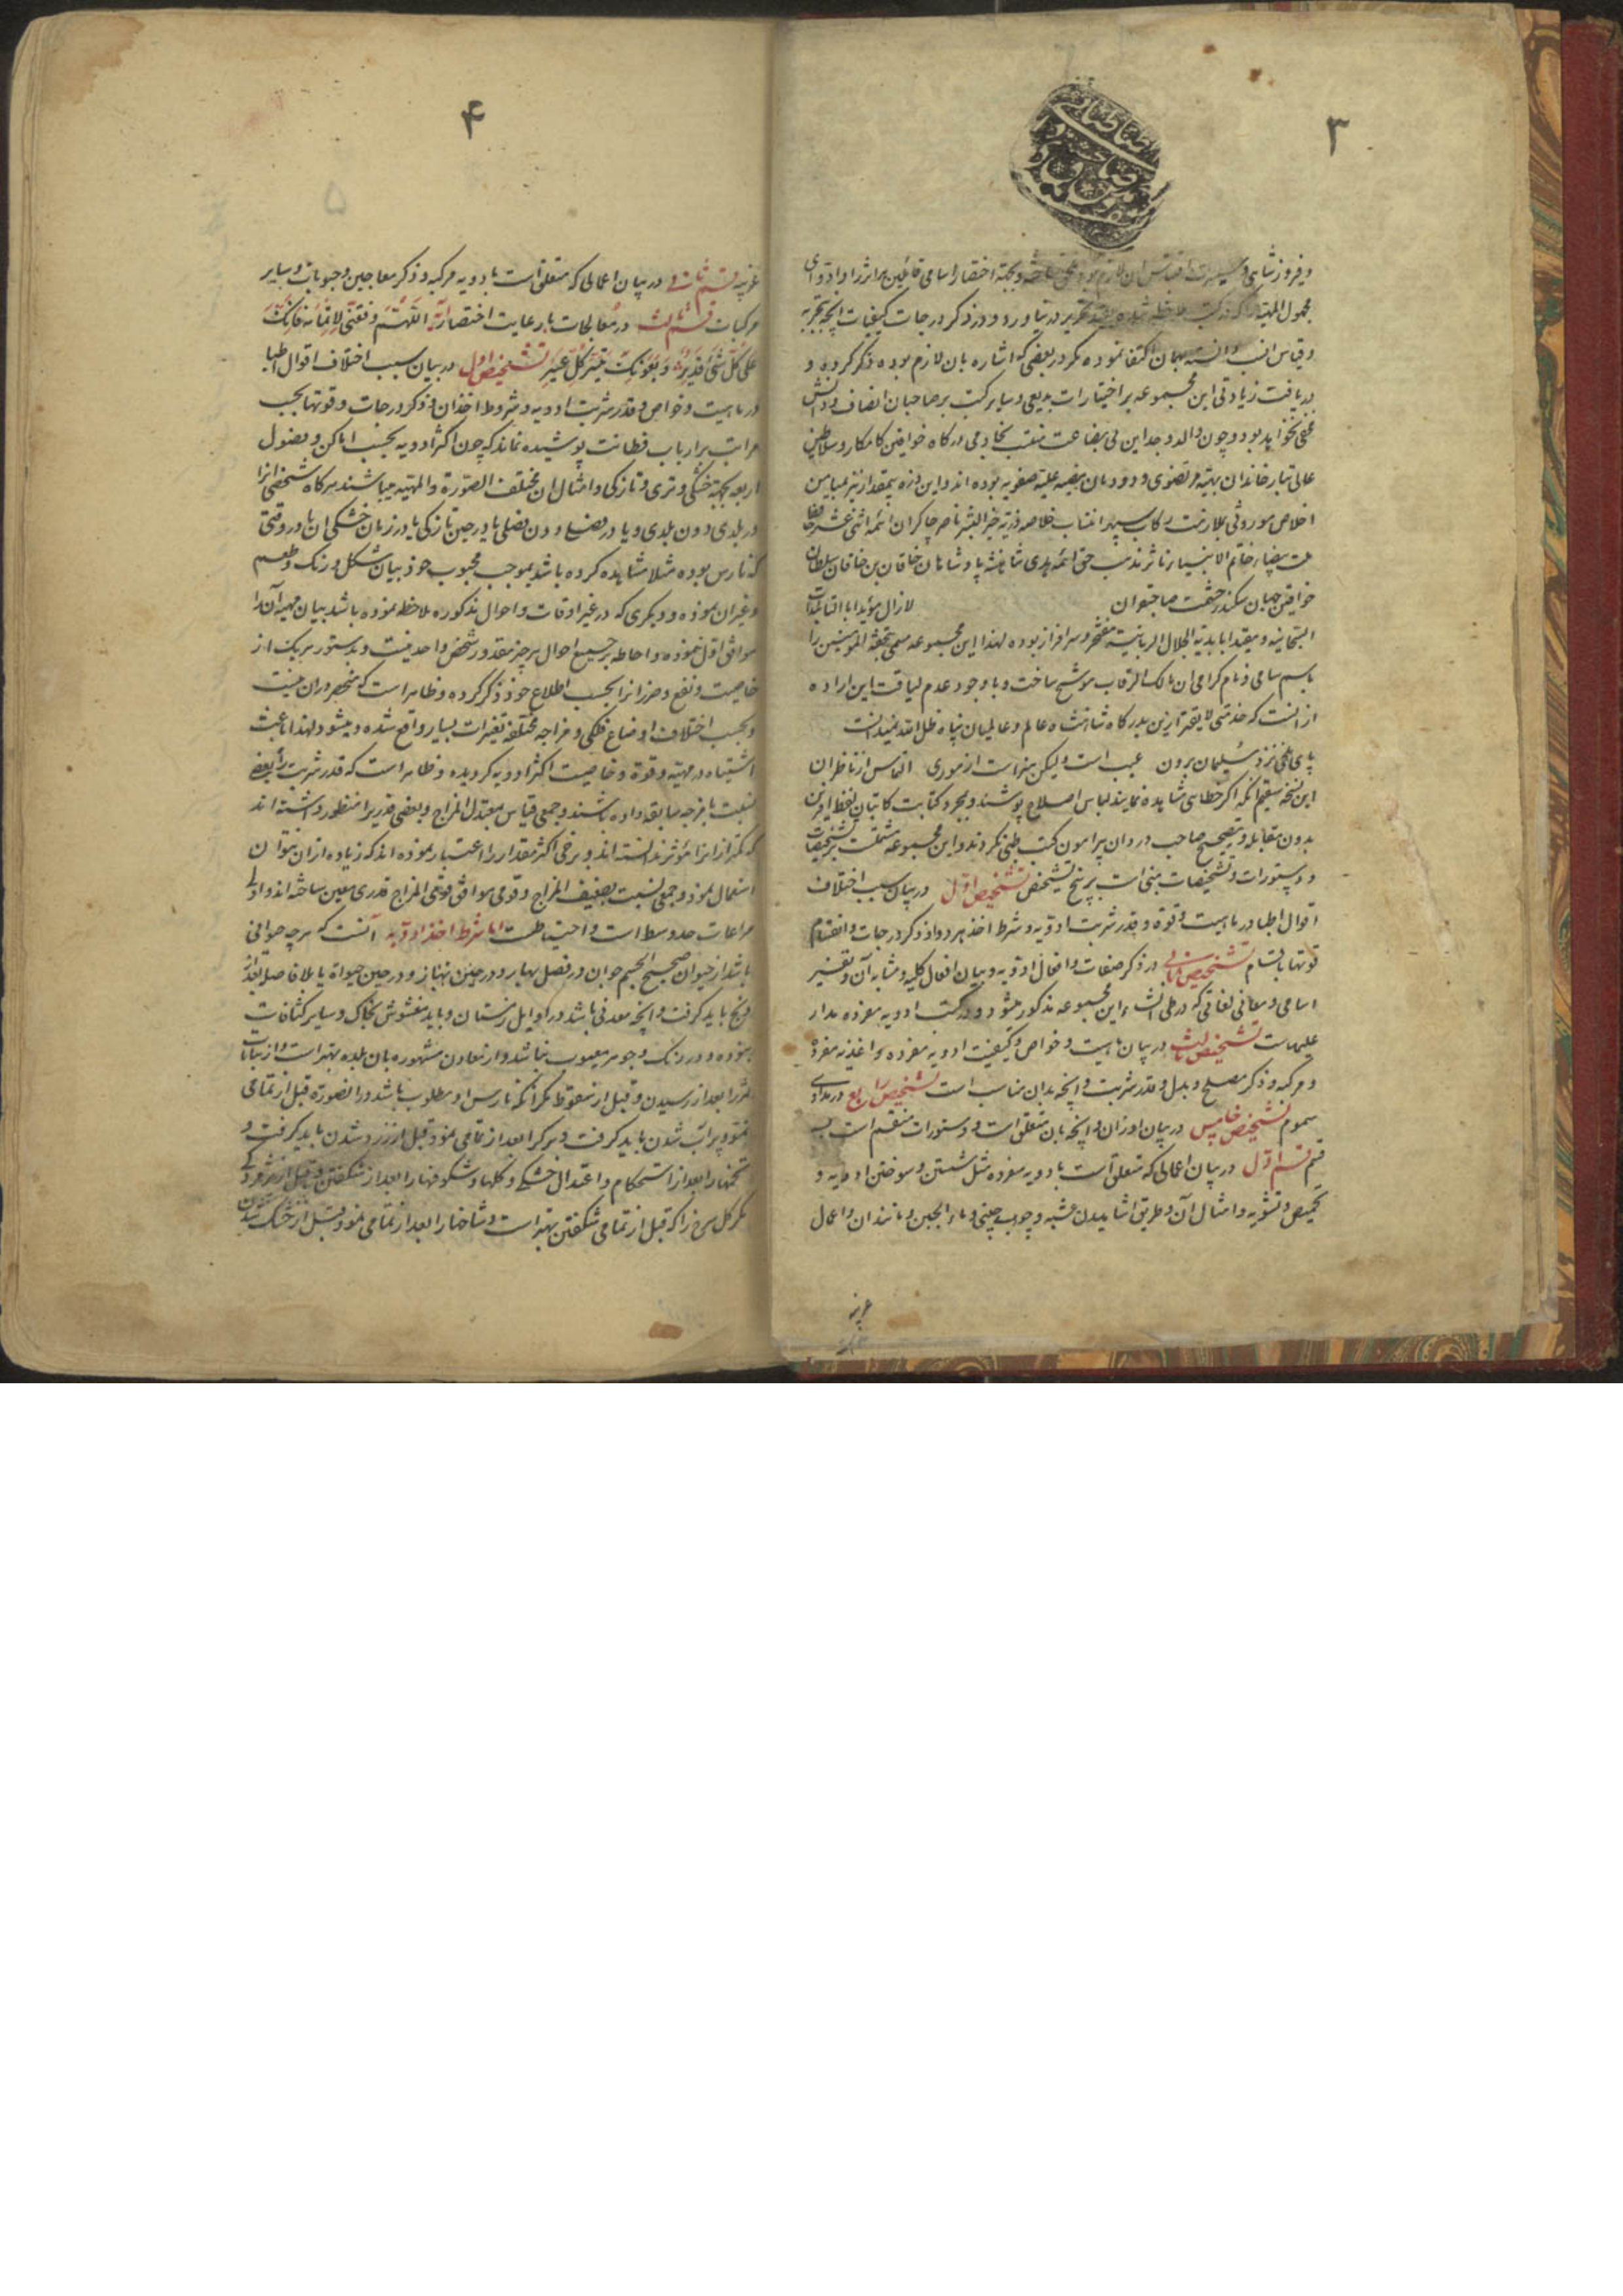 ۳
و فیروز شاهی و
مجهول المهیة را که در کتب ملاحظه شده بقید تحریر در نیاورد و در ذکر درجات کیفیات آنچه بتجربه
و قیاس انسب دانسته بهمان اکتفا نموده مگر در بعضی که اشاره بان لازم بوده ذکر کرده و
دریافت زیادتی این مجموعه بر اختیارات بدیعی و سایر کتب بر صاحبان انصاف و دانش
مخفی نخواهد بود و چون والد و جد این بی بضاعت منتسب بخادمی درگاه خواقین کامکار و سلاطین
عالی تبار خاندان بهیه مرتضوی و دودمان مضیه علیه صفویه بوده اند و این ذره بیمقدار نیز بمیامن
اخلاص موروثی بملازمت رکاب سپهر انتساب خلاصه ذریه خیر البشر ناصر چاکران ائمه اثنی عشر حافظ
ملت بیضاء خاتم الانبیا ناشر مذهب حق ائمه هدی شاهنشه پادشاهان خاقان بن خاقان سلطان
خواقین جهان سکندر حشمت صاحبقران لازال مؤیدا بالتائیدات
السبحانیه و مقیدا بابدیة الجلال الربانیة مفتخر و سرافراز بوده لهذا این مجموعه مسمی بتحفة المؤمنین را
باسم سامی و نام گرامی آن مالک الرقاب موشح ساخت و با وجود عدم لیاقت این اراده
از آنست که خدمتی لایقتر ازین بدرگاه شاهنشاه عالم و عالمیان پناه ظل الله نمیدانست
پای ملخی نزد سلیمان بردن عیب است ولیکن هنر است از موری التماس از ناظران
این نسخه سقیم آنکه اگر خطائی مشاهده نمایند لباس اصلاح پوشند و بمجرد کتابت کاتبان بغلط
بدون مقابله و تصحیح صاحب در دان پیرامون کتب طبی نکردند و این مجموعه مشتملست بر تشخیصات
و دستورات و تشخیصات مبنی است بر پنج تشخیص تشخیص اول در بیان سبب اختلاف
اقوال اطبا در ماهیت و قوة و قدر شربت ادویه و شرط اخذ هر دوا و ذکر درجات و انقسام
قوتها باقسام تشخیص ثانی در ذکر صفات و افعال ادویه و بیان افعال کلیه و مشابه آن و تفسیر
اسامی و معانی لغاتی که در طی انشاء این مجموعه مذکور میشود و در کتب ادویه مفرده مدار
علیه است تشخیص ثالث در بیان ماهیت و خواص و کیفیت ادویه مفرده و اغذیه مفرده
و مرکبه و ذکر مصلح و بدل و قدر شربت و آنچه بدان مناسب است تشخیص رابع در مداوای
سموم تشخیص خامس در بیان اوزان و آنچه بان متعلق است و دستورات منقسم است بسه
قسم قسم اول در بیان اعمالی که متعلق است بادویه مفرده مثل شستن و سوختن ادویه و
تحمیص و تشویه و امثال آن و طریق آشامیدن عشبه و چوب چینی و ماء الجبن و مانند آن و اعمال
غریبه
۴
غریبه قسم ثانی در بیان اعمالی که متعلق است بادویه مرکبه و ذکر معاجین و حبوبات و سایر
مرکبات قسم ثالث در معالجات با رعایت اختصار اللهم وفقنی لاتمامه فانک
علی کل شیء قدیر و بعونک تیسر کل عسیر تشخیص اول در بیان سبب اختلاف اقوال اطبا
در ماهیت و خواص و قدر شربت ادویه و شروط اخذ آن و ذکر درجات و قوتها بحسب
مراتب بر ارباب فطانت پوشیده نماند که چون اکثر ادویه بحسب اماکن و فصول
اربعه بجهة خشکی و تری و تازگی و امثال آن مختلف الصورة و المهیه میباشند هرگاه شخصی آنرا
در بلدی دون بلدی و یا در فصلی دون فصلی یا در حین تازگی یا در زمان خشکی آن یا در وقتی
که نارس بوده مثلا مشاهده کرده باشد بموجب محبوب خود بیان شکل و رنگ و طعم
و غیر آن نموده و دیگری که در غیر اوقات و احوال مذکوره ملاحظه نموده باشد بیان مهیه آن را
موافق اول ننموده و احاطه بر جمیع احوال هر چیز مقدور شخص واحد نیست و بدستور هر یک از
خاصیت و نفع و ضرر آنرا بحسب اطلاع خود ذکر کرده و ظاهر است که منحصر در آن نیست
و بحسب اختلاف اوضاع فلکی و امزجه مختلفه تغییرات بسیار واقع شده و میشود لهذا باعث
اشتباه در مهیه و قوة و خاصیت اکثر ادویه گردیده و ظاهر است که قدر شربت را بعضی
نسبت بامزجه سابقه داده باشند و جمعی قیاس بمعتدل المزاج و بعضی قدری را منظور داشته اند
که کمتر از آنرا مؤثر ندانسته اند و برخی اکثر مقدار را اعتبار نموده اند که زیاده از آن نتوان
استعمال نمود و جمعی نسبت بضعیف المزاج و قومی موافق قوی المزاج قدری معین ساخته اند و اولی
مراعات حد وسط است و احتیاطست اما شرط اخذ ادویه آنست که هر چه حیوانی
باشد از حیوان صحیح الجسم جوان در فصل بهار و در حین حیوة یا بلا فاصله بعد از
ذبح باید گرفت و آنچه معدنی باشد در اوایل زمستان و باید مغشوش بخاک و سایر کثافات
نبوده و در رنگ و جوهر معیوب نباشد و از معادن مشهوره بان بلده بهتر است و از نباتات
ثمر را بعد از رسیدن و قبل از سقوط مگر آنکه نارس او مطلوب باشد در آنصورة قبل از تمامی
نمو و پر آب شدن باید گرفت و برگ را بعد از تمامی نمو و قبل از زرد شدن باید گرفت و
تخمها را بعد از استحکام و اعتدال خشکی و گلها و شکوفها را بعد از شکفتن و قبل از پژمردگی
مگر گل سرخ را که قبل از تمامی شکفتن بهتر است و شاخها را بعد از تمامی نمو و قبل از خشک شدن